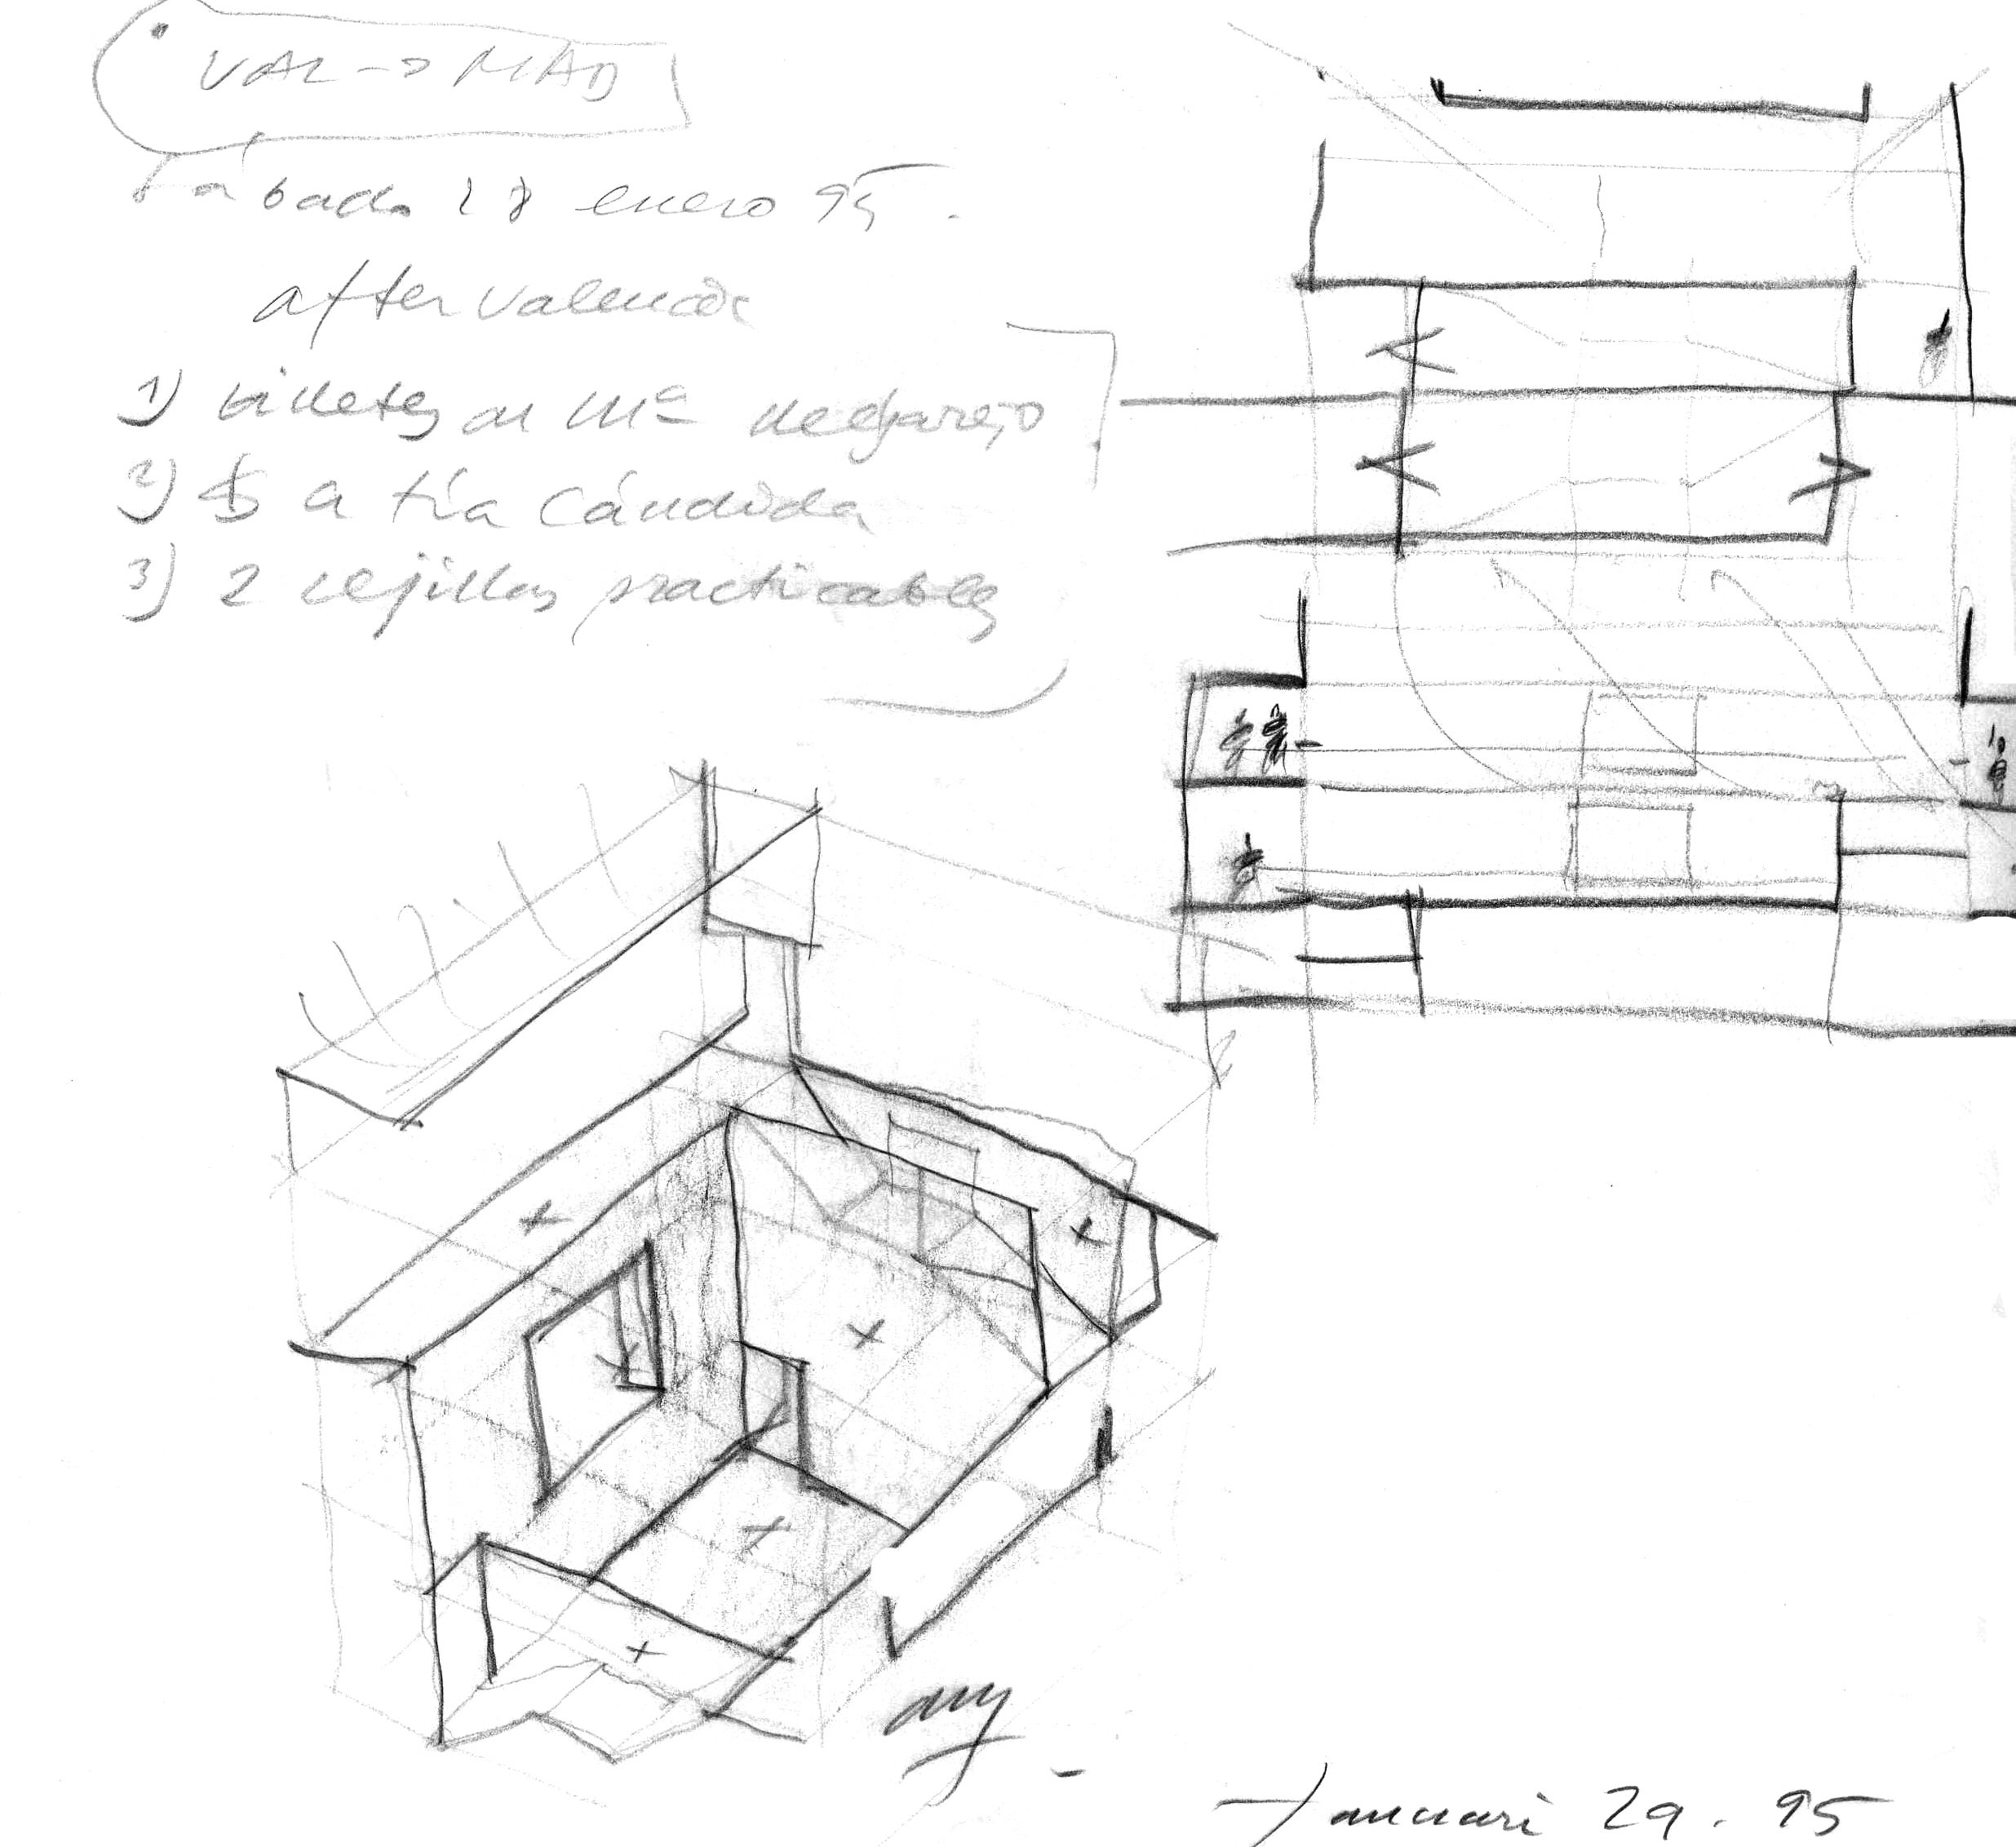 VAL -> MAD
sábado 28 enero 95.
after Valencia
1) billetes Mª
2) $ a tía Cándida
3) 2 rejillas practicables
Januari 29. 95